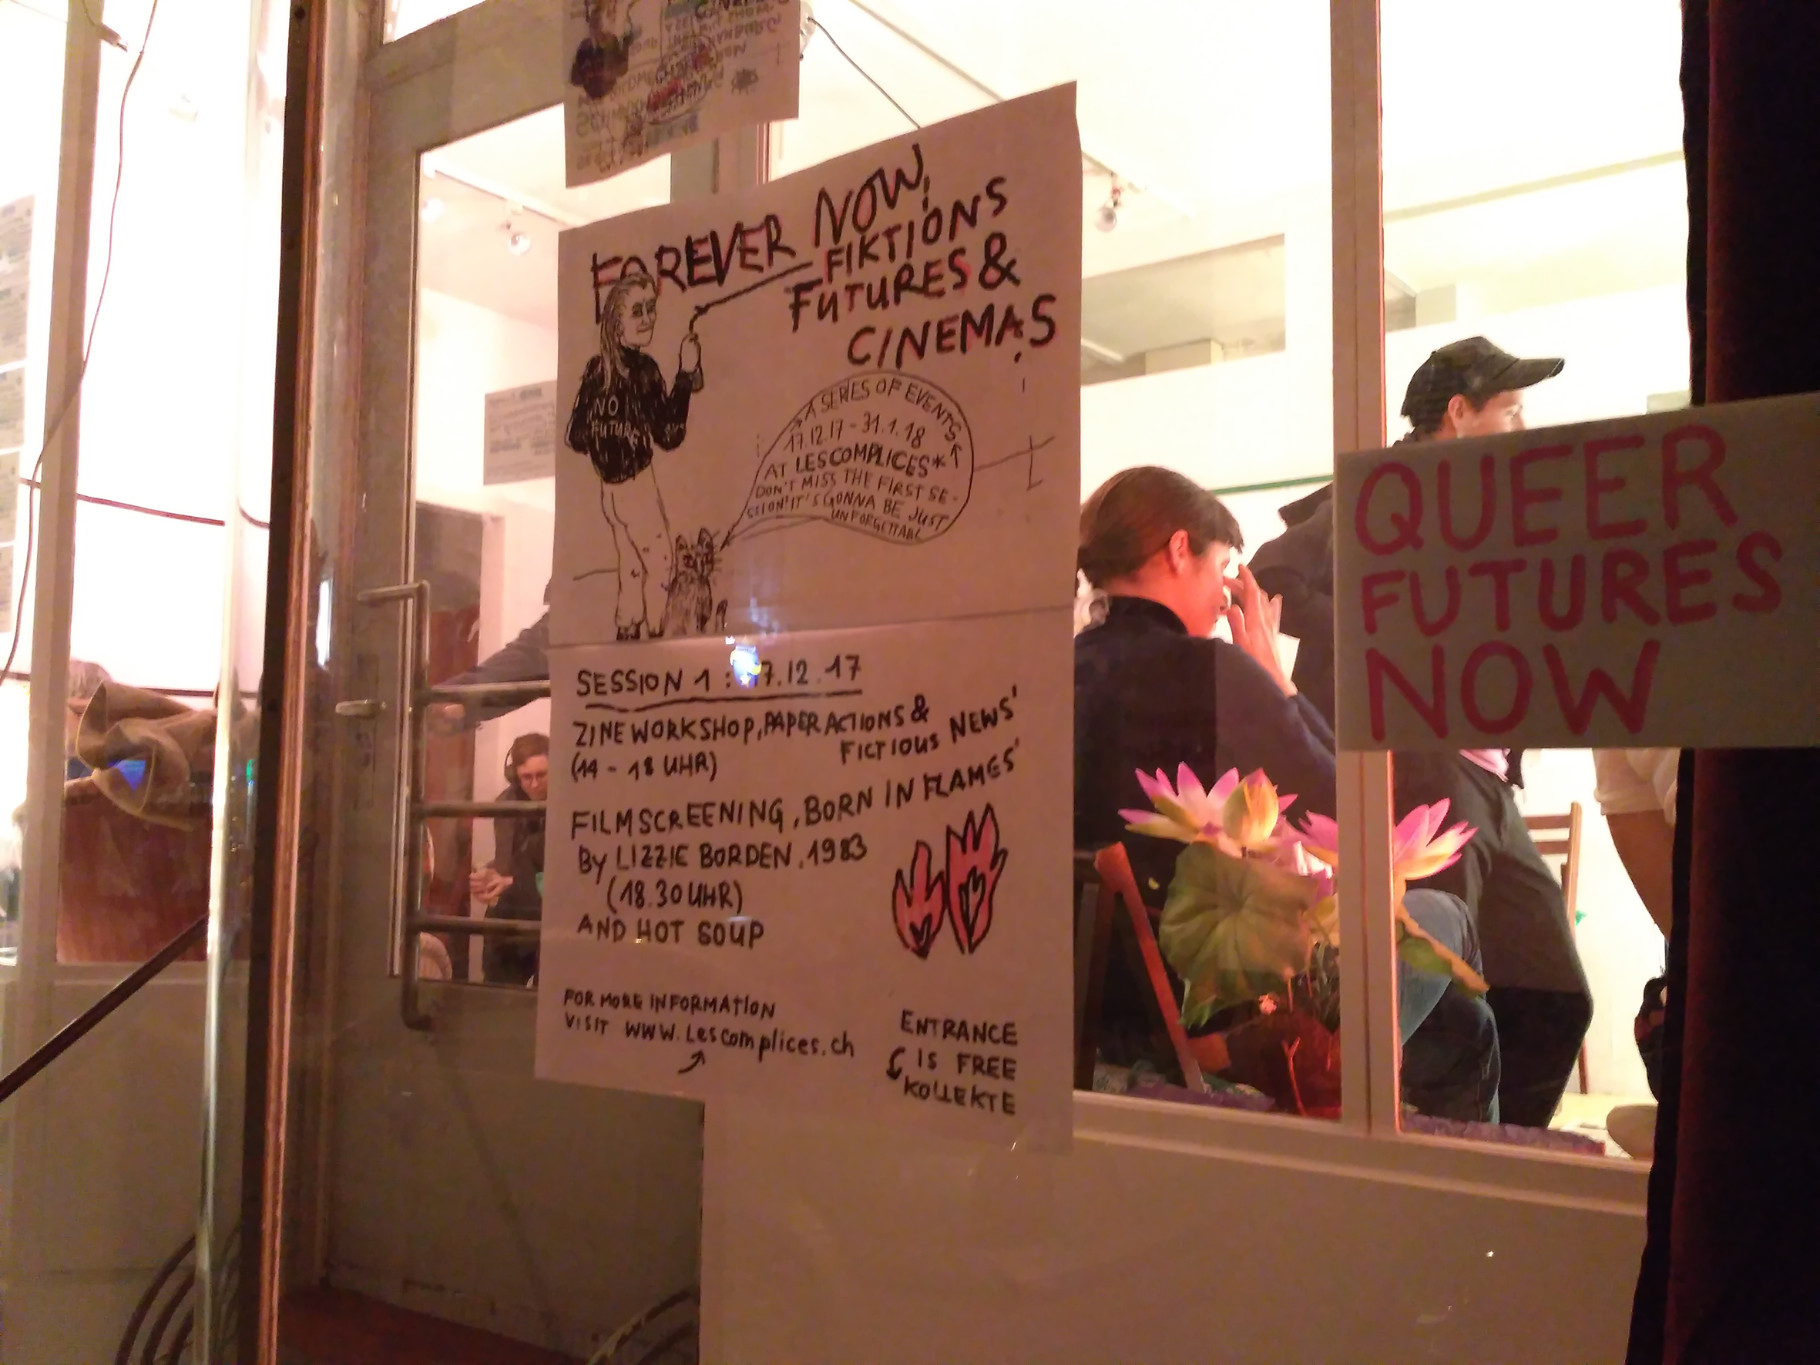 FOREVER NOW,
FIKTIONS
FUTURES &
CINEMAS
NO
FUTURE
A SERIES OF EVENTS
17.12.17 - 31.1.18
AT LES COMPLICES*
DON'T MISS THE FIRST SE-
SSION! IT'S GONNA BE JUST
UNFORGETTABL
SESSION 1 : 17.12.17
ZINE WORKSHOP, PAPER ACTIONS &
FICTIOUS NEWS'
(14 - 18 UHR)
FILMSCREENING, BORN IN FLAMES'
By LIZZIE BORDEN, 1983
(18.30 UHR)
AND HOT SOUP
FOR MORE INFORMATION
VISIT WWW.LEScomplices.ch
ENTRANCE
IS FREE
KOLLEKTE
QUEER
FUTURES
NOW